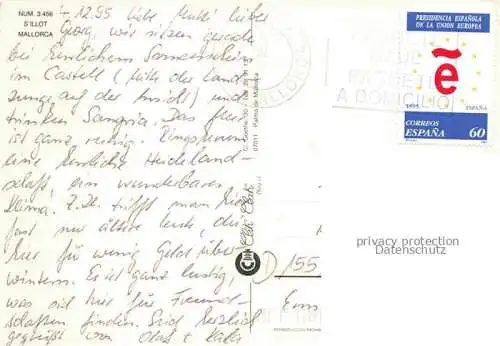 NUM. 3.456
S'ILLOT
MALLORCA
4.12.95 Liebe Mutti, lieber
Georg, wir sitzen gerade
bei herrlichem Sonnenschein
im Castell (Mitte der Land-
zunge auf der Ansicht) und
trinken Sangria. Das hier
ist ganz ruhig. Ringsherum
eine herrliche Heideland-
schaft, ein wunderbares
Klima. Z.Zt. trifft man hier
fast nur ältere Leute, die
hier für wenig Geld über-
wintern. Es ist ganz lustig,
was sich hier für Freund-
schaften finden. Seid herzlich
gegrüßt von Olaf +
07011 - Palma de Mallorca
Clic-Clac
PAQUETE
A DOMICILIO
PRESIDENCIA ESPAÑOLA
DE LA UNION EUROPEA
ẽ
1995
ESPAÑA
CORREOS
ESPAÑA
60
privacy protection
Datenschutz
155